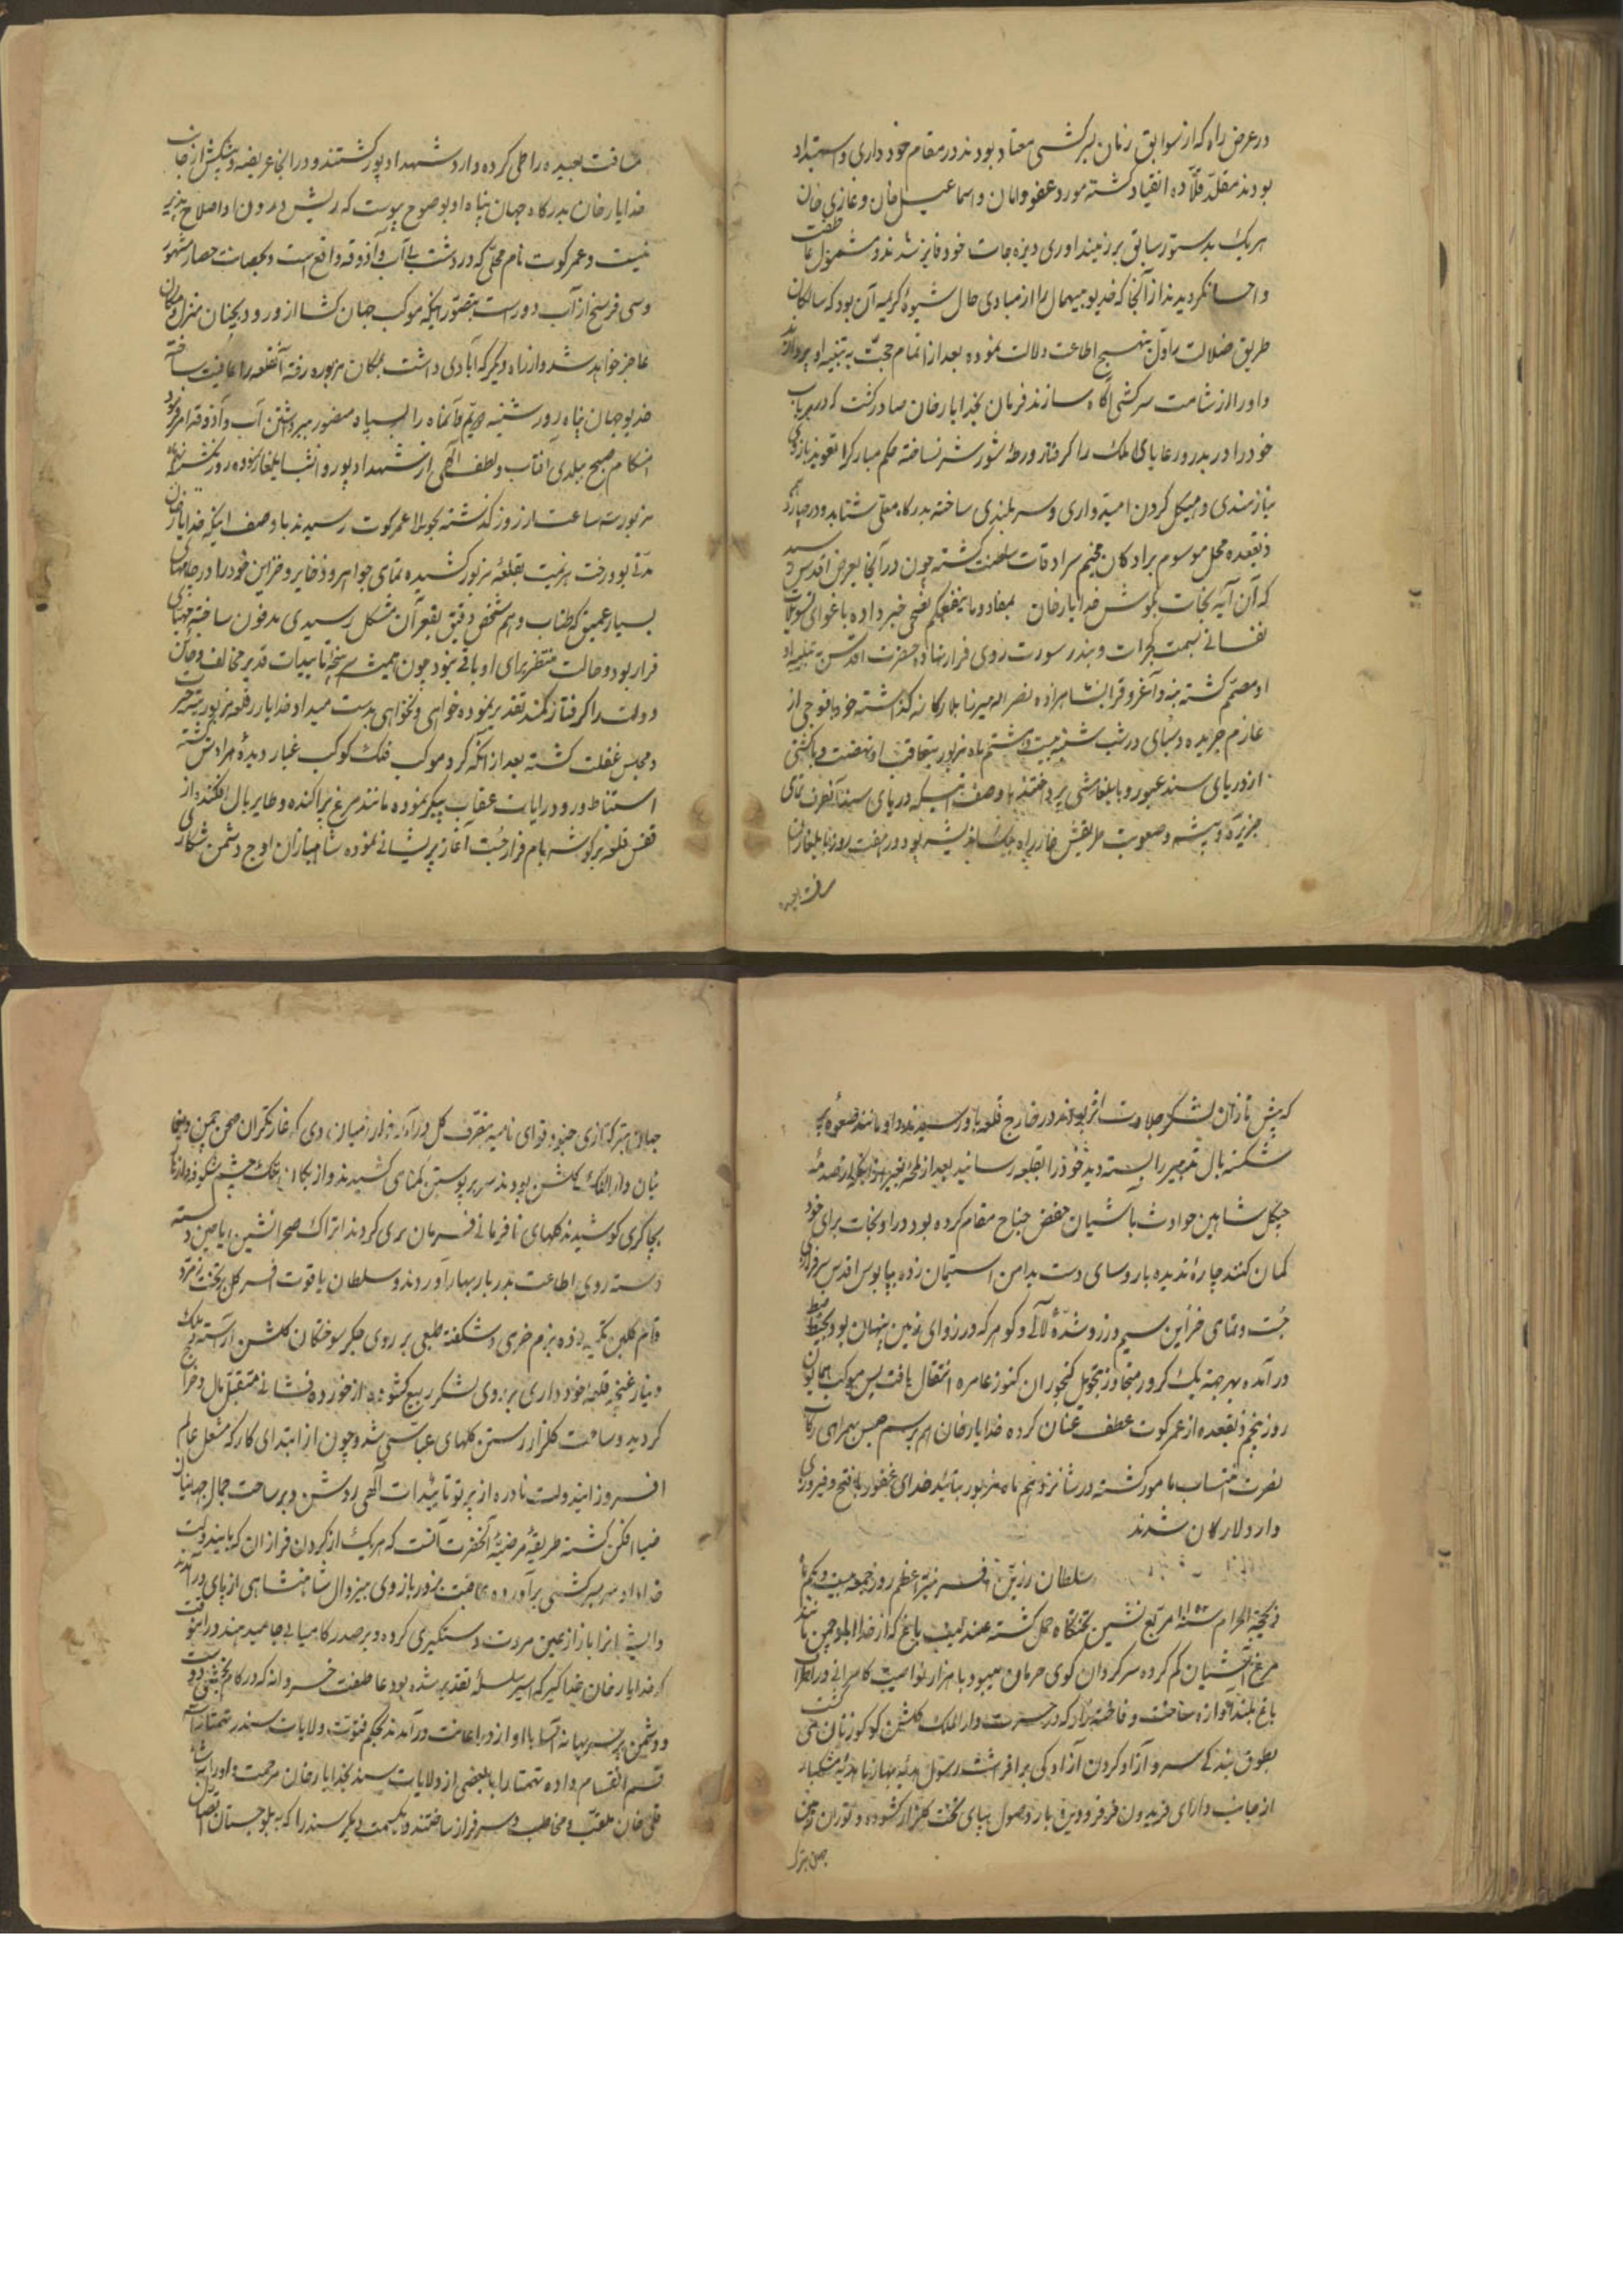 در عرض راه که از سوابق زمان بسرکشی معتاد بودند در مقام خود داری و استبداد
بودند مقلّد قلّاده انقیاد گشته مورد عفو و امان و اسماعیل خان و غازی خان
هریک بدستور سابق بر زمینداوری دیره جات خود فایز شدند و مشمول عاطفت
و احسان گردیدند از آنجا که خدیو بیهمال را از مبادی حال شیوهٔ کریمه آن بود که سالکان
طریق ضلالت را اول بنهج اطاعت دلالت نموده بعد از اتمام حجت به تنبیه او پردازند
و او را از شامت سرکشی آگاه سازند فرمان بخدایارخان صادر گشت که در هر باب
خود را در بدر و رعایای الملک را گرفتار ورطهٔ شور و شر نساخته حکم مبارک را تعویذ بازوی
نیازمندی و هیکل گردن امیدواری و سربلندی ساخته بدرگاه معلی شتابد و در چهاردهم
ذیقعده محل موسوم برادکان مخیم سرادقات سلطنت گشته چون در آنجا بعرض اقدس رسید
که آن آیه نجات بگوش خدایارخان بمفاد و ما ینفعکم نصحی خبر داده باغوای تسویلات
نفسانی بسمت گجرات و بندر سورت روی فرار نهاده حضرت اقدس به تنبیه او
او مصمّم گشته بنه و آغروق را با شاهزاده نصرالله میرزا بلارکانه گذاشته خود با فوجی از
عازم جریده و سبای در شب شنبه بیست و هشتم ماه مزبور بتعاقب او نهضت و با کشتی
از دریای سند عبور و بایلغار شی پرداختند با وصف اینکه دریای سند آنطرف تمامی
جزیره و بیشه و صعوبت طریقش خار راه چکمه اندیشه بود در هفت روز با یلغار آن
مسافت بعیده
مسافت بعیده را طی کرده وارد شهدادپور گشتند و در آنجا عریضه و پیشکش از جانب
خدایارخان بدرگاه جهان پناه او بوضوح پیوست که ریش درون او اصلاح پذیر
نیست و عمرکوت نام محلی که در دشت بی آب و آذوقه واقع است و بحصانت حصار مشهور
و سی فرسخ از آب دور است بتصور اینکه موکب جهان گشا از ورود بچنان منزل و مکان
عاجز خواهد شد و از راه دیگر که آبادی داشت بمکان مزبوره رفته آنقلعه را عافیت ساخته
خدیو جهان پناه روز شنبه دویم آنماه را بسپاه منصور ببرداشتن آب و آذوقه امر فرمود
هنگام صبح ببلدی آفتاب و لطف الهی از شهدادپور روانه شب ایلغار نموده روز یکشنبه
مزبور سه ساعت از روز گذشته بحوالی عمرکوت رسیدند با وصف اینکه خدایارخان
مدتی بود رخت هزیمت بقلعهٔ مزبور کشیده تمامی جواهر و ذخایر و خزاین خود را در چاههای
بسیار عمیق که طناب وهم شخص دقیق بقعر آن مشکل رسیدی مدفون ساخته مهیای
فرار بود و حالت منتظره برای او باقی نبود چون همیشه پنجهٔ تاییدات قدیر مخالف و خاین
دولت را گرفتار کمند تقدیر نموده خواهی و نخواهی بدست میداد خدایار در قلعه مزبور متحیر
و محبس غفلت گشته بعد از آنکه گرد موکب فلک کوکب غبار دیدهٔ مرادش گشته
استنباط ورود رایات عقاب پیکر نموده مانند مرغ پراکنده و طایر بال افکنده از
قفس قلعه بر گوشه بام فرار جست آغاز پرفشانی نموده شاهبازان اوج دشمن شکاری
که پیش تازان لشکر جلادت اثر بودند در خارج قلعه باو رسیدند او مانند صعوه پر
شکسته بال تدبیر را بسته دید خود را بقلعه رسانید بعد از لمحهٔ بغیر از اینکه از صدمهٔ
چنگل شاهین حوادث بآشیان خفض جناح مقام کرده بود در او نجات برای خود
گمان کنند چارهٔ ندیده با روسای دست بدامن استیمان زده بپابوس اقدس سرفرازی
جست و تمامی خزاین سیم و زر و شدّهٔ لآلی و گوهر که در زوایای زمین پنهان بود بحیطهٔ ضبط
در آمده بهر جهة یک کرور متجاوز بتحویل گنجوران کنوز عامره انتقال یافت پس موکب همایون
روز پنجم ذیقعده از عمرکوت عطف عنان کرده خدایارخان هم برسم حبس بهمراهی رکاب
نصرت انتساب مامور گشته در شانزدهم ماه مزبور بتائید خدای غفور با فتح و فیروزی
وارد لارکان شدند
سلطان زرین افسر نیر اعظم روز جمعه بیست و یکم ماه
ذیحجة الحرام سنه ۱۱۵۲ مربع نشین تختگاه حمل گشته عندلیب باغ که از خدا ابلوچمن مانند
مرغ آشیان گم کرده سرگردان کوی حرمان میبود با هزار نوا صیت کامرانی در اطراف
باغ بلند آوازه ساخت و فاخته نژاد که در حسرت دار الملک گلشن کوکو زنان می گشت
بطوق بندگی سرو آزاد گردن آزادگی برافراشت رسول مؤید بهار با هدیه مشکبار
از جانب دارای فریدون فر فروردین بار وصول بپای تخت گلزار گشوده و توران زمین
چمن بترک
جنود قوای نامیه متصرف گل درآمد دی که غارتگران صحن چمن و یغما
ئیان دار الملک گلشن بودند سر بر پوستین گمنامی کشیدند و از بکان خنک چشم شکوفه
بچاکری کوشیدند گلهای نافرمانی فرمان بری کردند اتراک صحرانشین ریاحین دسته
دسته روی اطاعت بدربار بهار آوردند و سلطان یاقوت افسر گل بتخت زمرد
قام گلبن تکیه زده بزم خرمی و شکفته طبعی بر روی جگر سوختگان گلشن آراسته ملک
و نیاز غنچه قلعه خود داری بر روی لشکر ربیع گشوده از خورده فشانی متقبل مال و خراج
گردید و ساحت گلزار رستن گلهای عباسی شد و چون از ابتدای کار که مشعل عالم
افروز ایندولت نادره از پرتو تائیدات الهی روشن و بر ساحت جمال جهانیان
ضیا افکن گشته طریقهٔ مرضیهٔ آنحضرت آنست که هریک از گردن فرازان که بایندولت
خداداد سر بسرکشی برآورده عاقبت بزور بازوی بیزوال شاهنشاهی از پای درآمدند
و ایشانرا باز از عین مروت دستگیری کرده و بر صدر کامیابی جا میدهند در اینوقت
که خدایارخان خدا گیر که اسیر سلسلهٔ تقدیر شده بود عاطفت خسروانه که در کام بخشی دوست
و دشمن بهانه آسا با او از در اعانت درآمدند بحکم فتوّت ولایات سند و تهتا را سه
قسم انقسام داده تهتا را با بعضی از ولایات سند بخدایارخان مرحمت و او را بشاه
قلی خان ملقب و مخاطب و سرفراز ساختند و یکسمت دیگر سند را که به بلوچستان اتصال